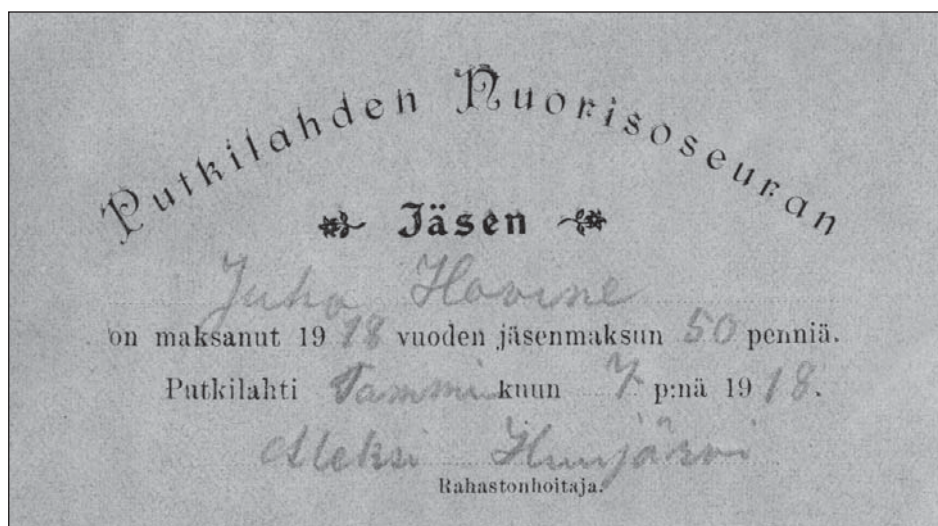 Putkilahden Nuorisoseuran
Jäsen
Juho Hovine
on maksanut 1918 vuoden jäsenmaksun 50 penniä.
Putkilahti Tammikuun 7 p:nä 1918.
Aleksi
Rahastonhoitaja.